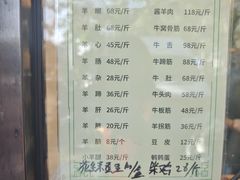 羊 68元/斤 酱羊肉 118元/斤
羊肚 68元/斤 牛窝骨筋 68元/斤
羊心 45元/斤 牛舌 98元/斤
羊肠 48元/斤 牛蹄筋 88元/斤
羊杂 28元/斤 牛肚 68元/斤
羊蹄 38元/斤 牛头肉 58元/斤
羊肝 28元/斤 牛板筋 48元/斤
羊肺 28元/斤 羊拐筋 36元/斤
羊 8元/个 豆皮 12元/斤
小羊腿 38元/斤 鹌鹑蛋 25元/斤
柴鸡 28/斤